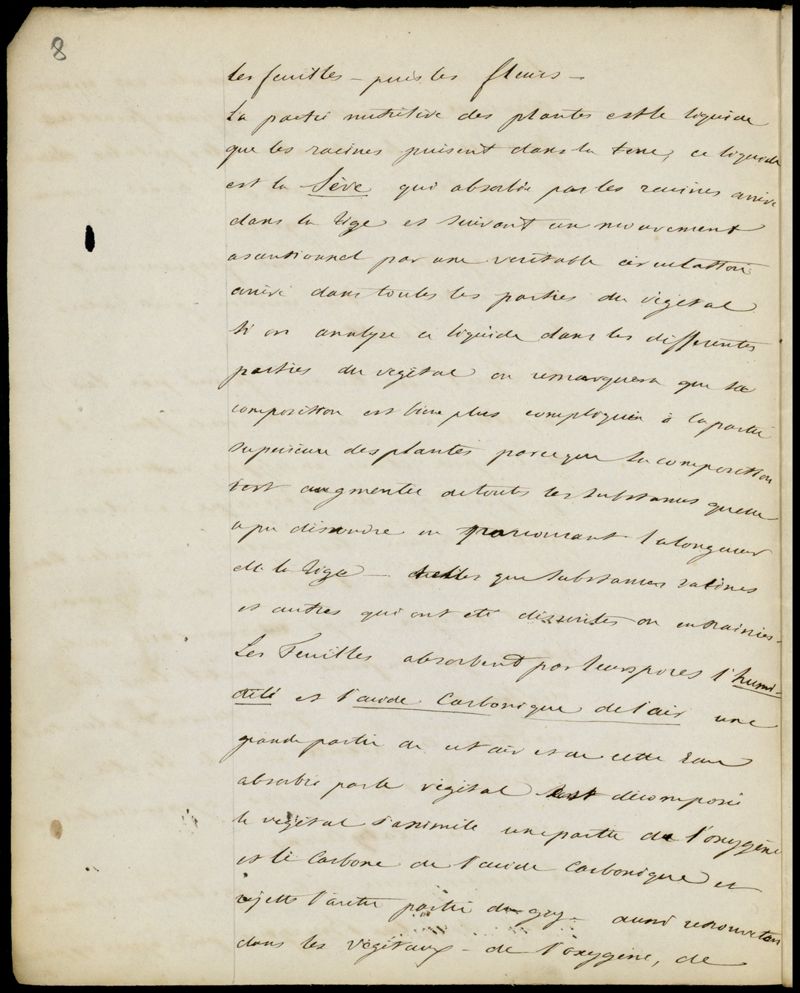 8
les feuilles – puis les fleurs –
La partie nutritive des plantes est le liquide
que les racines puisent dans la terre, ce liquide
est la Sève qui absorbée par les racines arrive
dans la tige et suivant un mouvement
ascentionnel par une veritable circulation
arrive dans toutes les parties du végétal
si on analyse ce liquide dans les differentes
parties du végétal on remarquera que sa
composition est bien plus compliquée à la partie
superieure des plantes parceque sa composition
est augmentée de toutes les substances quelle
a pu dissoudre en parcourant la longueur
de la tige – telles que substances salines
et autres qui ont été dissoutes ou entrainées –
Les Feuilles absorbent par leurs pores l'humi-
dité et l'acide Carbonique de l'air une
grande partie de cet air et de cette Eau
absorbée par le végétal est décomposée
le végétal s'assimile une partie de l'oxygène
et le Carbone de l'acide Carbonique et
rejette l'autre partie du gaz. aussi retrouve ton
dans les végétaux – de l'oxygène, de